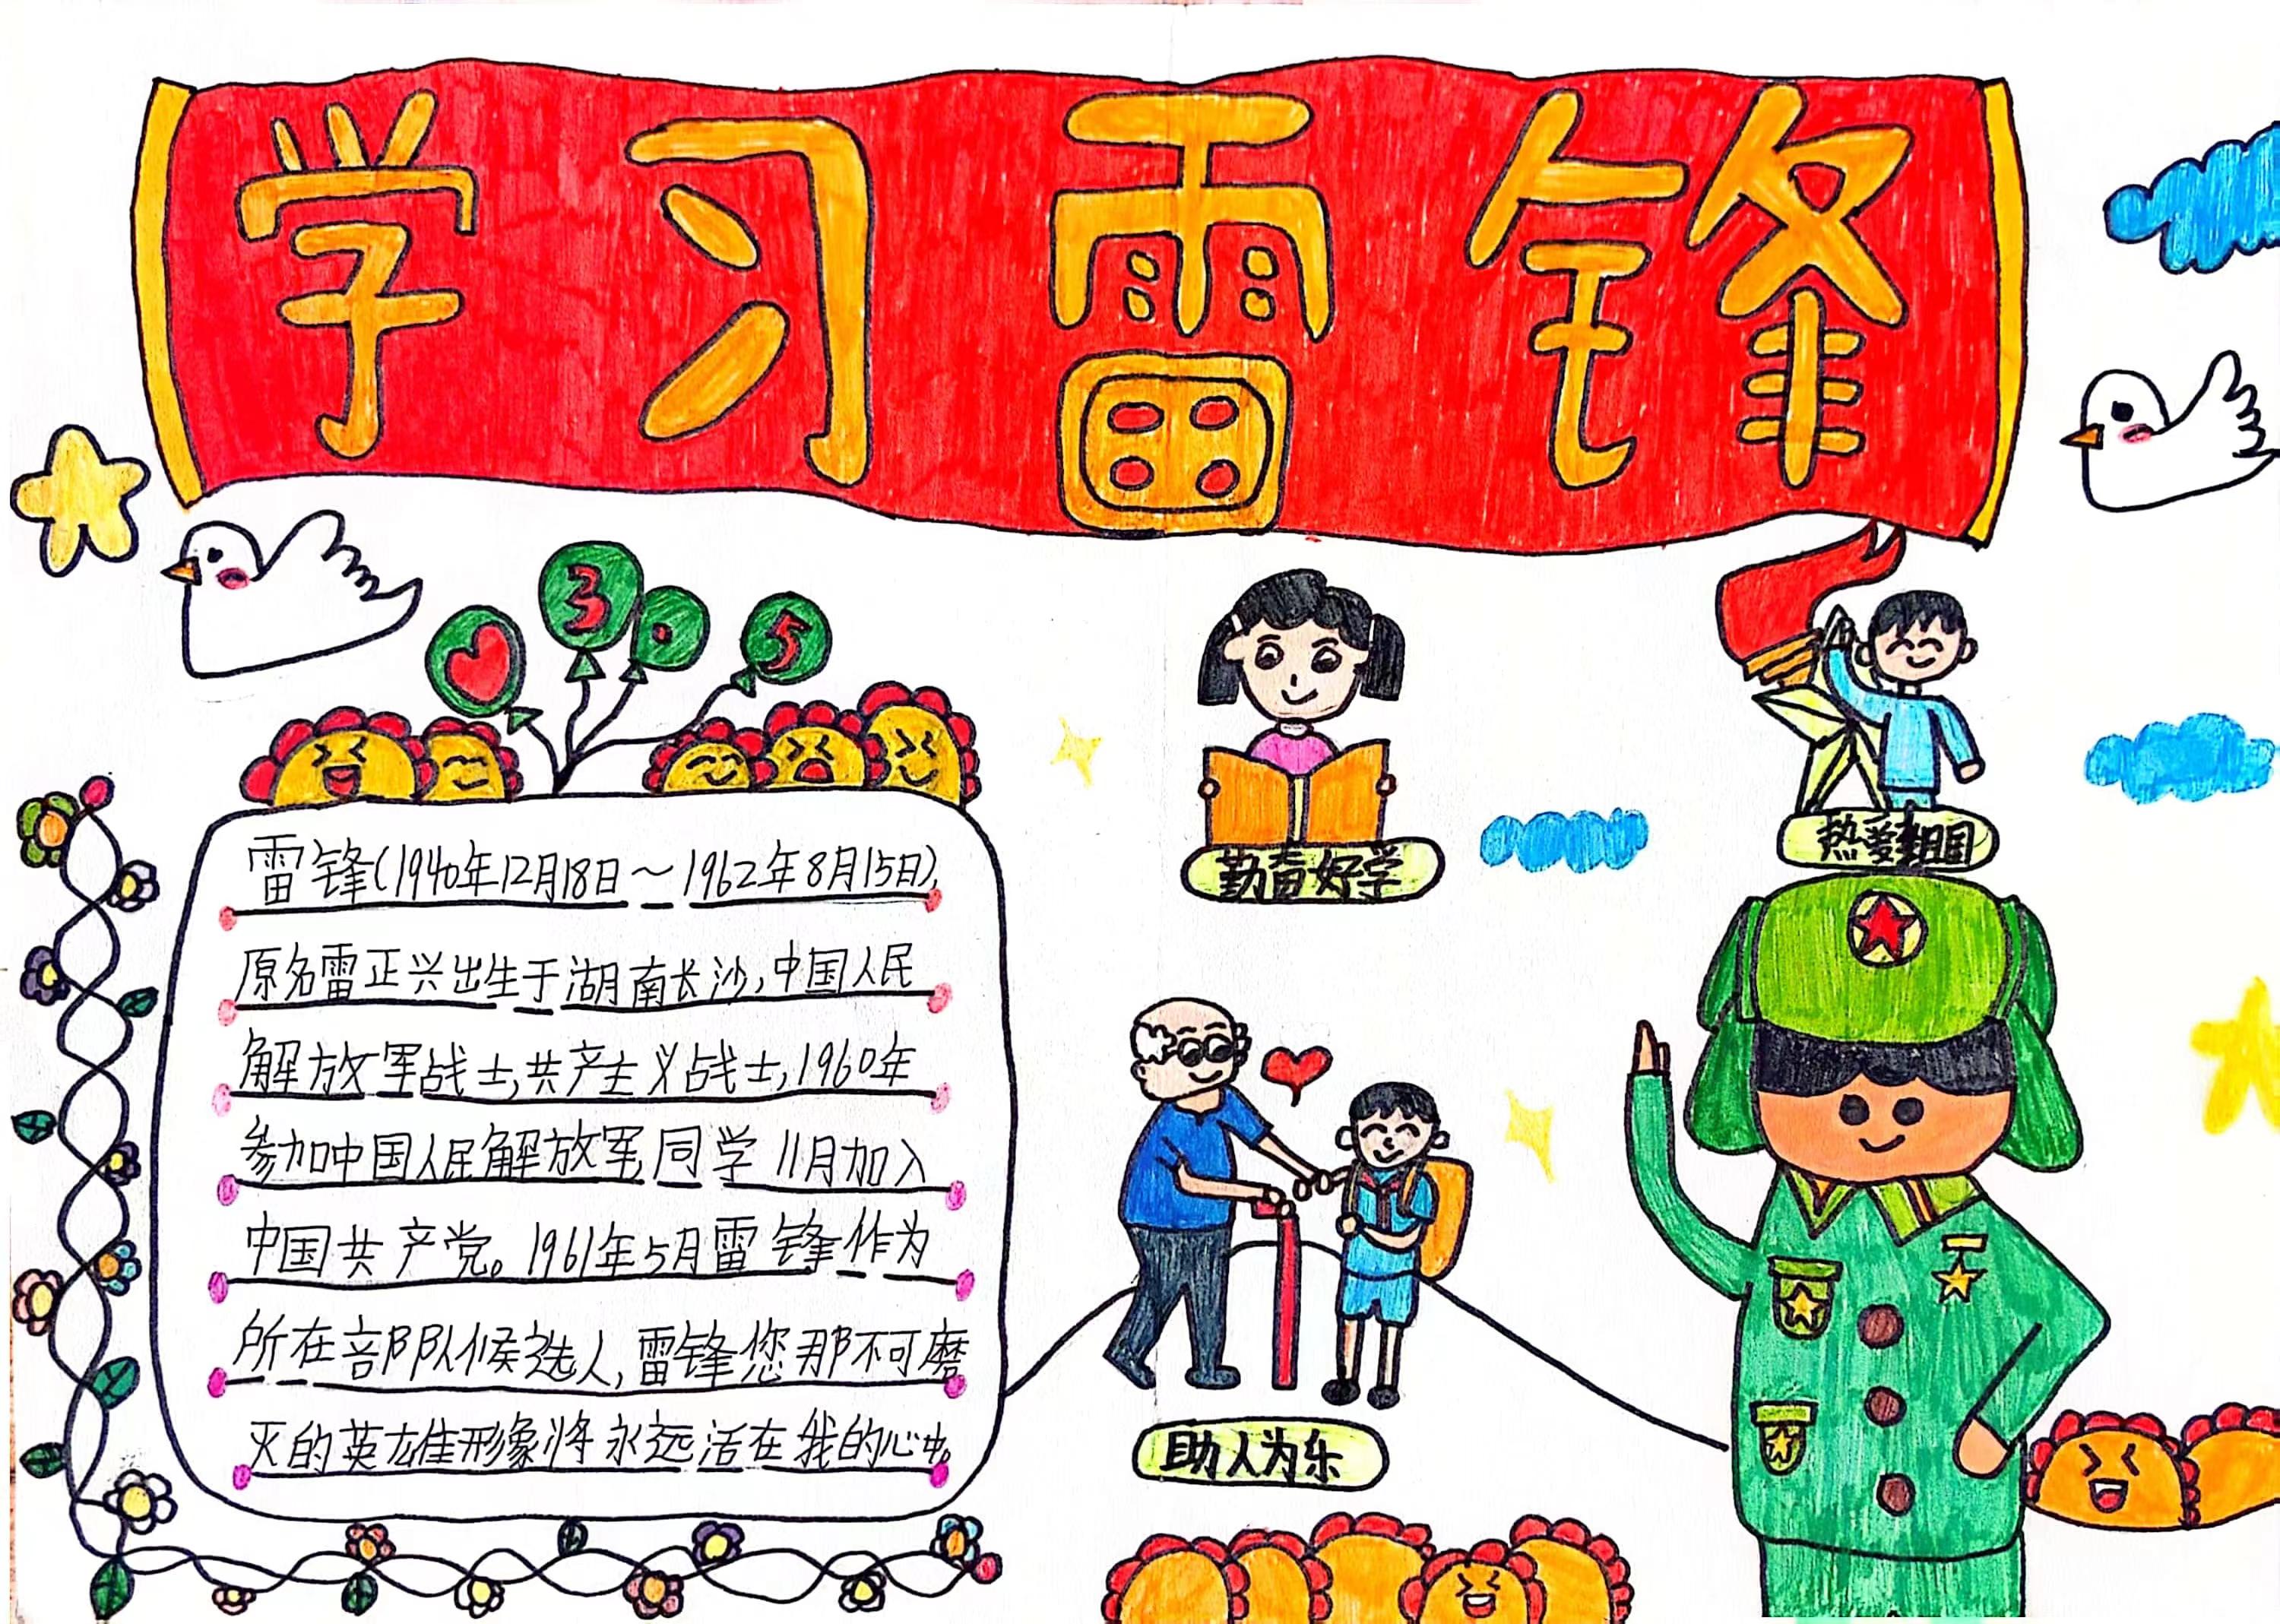 学习雷锋
3.5
雷锋(1940年12月18日~1962年8月15日),
原名雷正兴出生于湖南长沙,中国人民
解放军战士,共产主义战士,1960年
参加中国人民解放军,同学11月加入
中国共产党。1961年5月雷锋作为
所在部队候选人,雷锋您那不可磨
灭的英雄形象将永远活在我的心中。
勤奋好学
热爱祖国
助人为乐